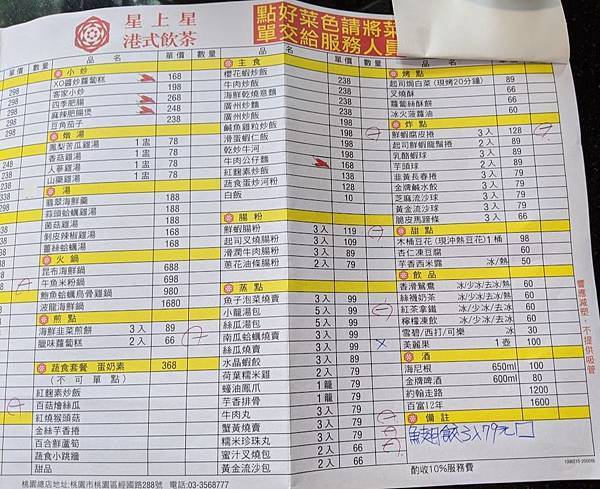 星上星
港式飲茶
點好菜色請將菜
單交給服務人員
單價 數量 品名 單價 數量 品名 單價 數量 品名 單價
小炒
298 XO醬炒蘿蔔糕 168
客家小炒 198
298 四季肥腸 268
298 麻辣肥腸煲 248
豆角茄子 238
燉湯
鳳梨苦瓜雞湯 1盅 78
香菇雞湯 1盅 78
248 人蔘雞湯 1盅 78
山藥雞湯 1盅 78
238 湯
翡翠海鮮羹 158
蒜頭蛤蠣雞湯 158
菌菇雞湯 158
剝皮辣椒雞湯 158
薑絲蛤蠣湯 168
火鍋
昆布海鮮鍋 688
牛魚米粉鍋 698
鮑魚蛤蠣烏骨雞鍋 980
波龍海鮮鍋 1680
煎點
海鮮韭菜煎餅 3入 89
臘味蘿蔔糕 2入 66
蔬食套餐 蛋奶素 368
(不可單點)
紅麴素炒飯
百菇燴絲瓜
紅燒猴頭菇
金絲芋香捲
百合鮮蘆筍
蔬食小跳牆
甜品
主食
櫻花蝦炒飯 238
牛肉炒飯 198
海鮮乾燒意麵 238
廣州炒麵 238
廣州炒飯 238
鹹魚雞粒炒飯 198
滑蛋蝦仁飯 198
乾炒牛河 198
牛肉公仔麵 168
紅麴素炒飯 138
蔬食蛋炒河粉 128
白飯 10
腸粉
鮮蝦腸粉 3入 119
起司叉燒腸粉 3入 109
滑潤牛肉腸粉 3入 89
蔥花油條腸粉 2入 79
蒸點
魚子泡菜燒賣 3入 99
小籠湯包 5入 99
絲瓜湯包 5入 99
南瓜蛤蠣燒賣 3入 99
絲瓜燒賣 3入 99
水晶蝦餃 3入 89
荷葉糯米雞 2入 79
蠔油鳳爪 1籠 79
芋香排骨 1籠 79
牛肉丸 3入 79
蟹黃燒賣 3入 79
糯米珍珠丸 3入 79
蜜汁叉燒包 2入 66
黃金流沙包 2入 66
烤點
起司焗白菜(現烤20分鐘) 89
叉燒酥 66
蘿蔔絲酥餅 66
冰火菠蘿油 60
炸點
鮮蝦腐皮捲 3入 128
起司鮮蝦龍鬚捲 2入 89
乳酪蝦球 3入 89
芋頭球 2入 89
韭黃長春捲 3入 79
金牌鹹水餃 3入 79
芝麻流沙球 3入 79
黃金流沙球 3入 79
脆皮馬蹄條 3入 66
甜點
木桶豆花(現沖熱豆花)1桶 98
杏仁凍豆腐 60
芋香西米露 冰/熱 50
飲品
香滑鴛鴦 冰/少冰/去冰/熱 60
絲襪奶茶 冰/少冰/去冰/熱 60
紅茶拿鐵 冰/少冰/去冰/熱 60
檸檬凍飲 冰/少冰/去冰 60
雪碧/西打/可樂 冰 30
美麗果 1壺 100
酒
海尼根 650ml 100
金牌啤酒 600ml 80
約翰走路 1200
百富12年 1600
備註
鮁魚餃3入79元
響應減塑,不提供吸管
酌收10%服務費
桃園總店地址:桃園市桃園區經國路288號 電話:03-3568777